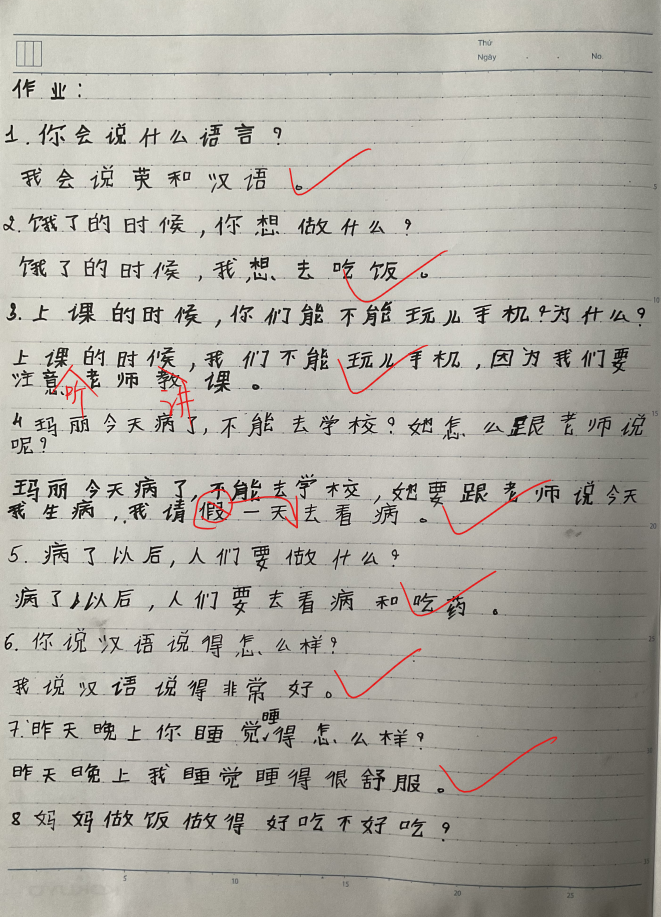 Thứ
Ngày . . No.
作业：
1. 你会说什么语言？
我会说英和汉语。
2. 饿了的时候，你想做什么？
饿了的时候，我想去吃饭。
3. 上课的时候，你们能不能玩儿手机？为什么？
上课的时候，我们不能玩儿手机，因为我们要
注意老师教课。
听
讲
4 玛丽今天病了，不能去学校？她怎么跟老师说
呢？
玛丽今天病了，不能去学校，她要跟老师说今天
我生病，我请假一天去看病。
5. 病了以后，人们要做什么？
病了以后，人们要去看病和吃药。
6. 你说汉语说得怎么样？
我说汉语说得非常好。
睡
7. 昨天晚上你睡觉得怎么样？
昨天晚上我睡觉睡得很舒服。
8 妈妈做饭做得好吃不好吃？
5 10 15 20 25